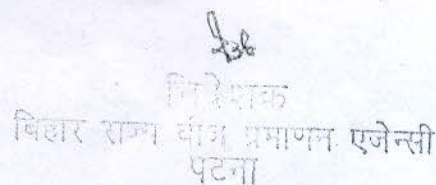 निदेशक
बिहार राज्य बीज प्रमाणन एजेन्सी
पटना